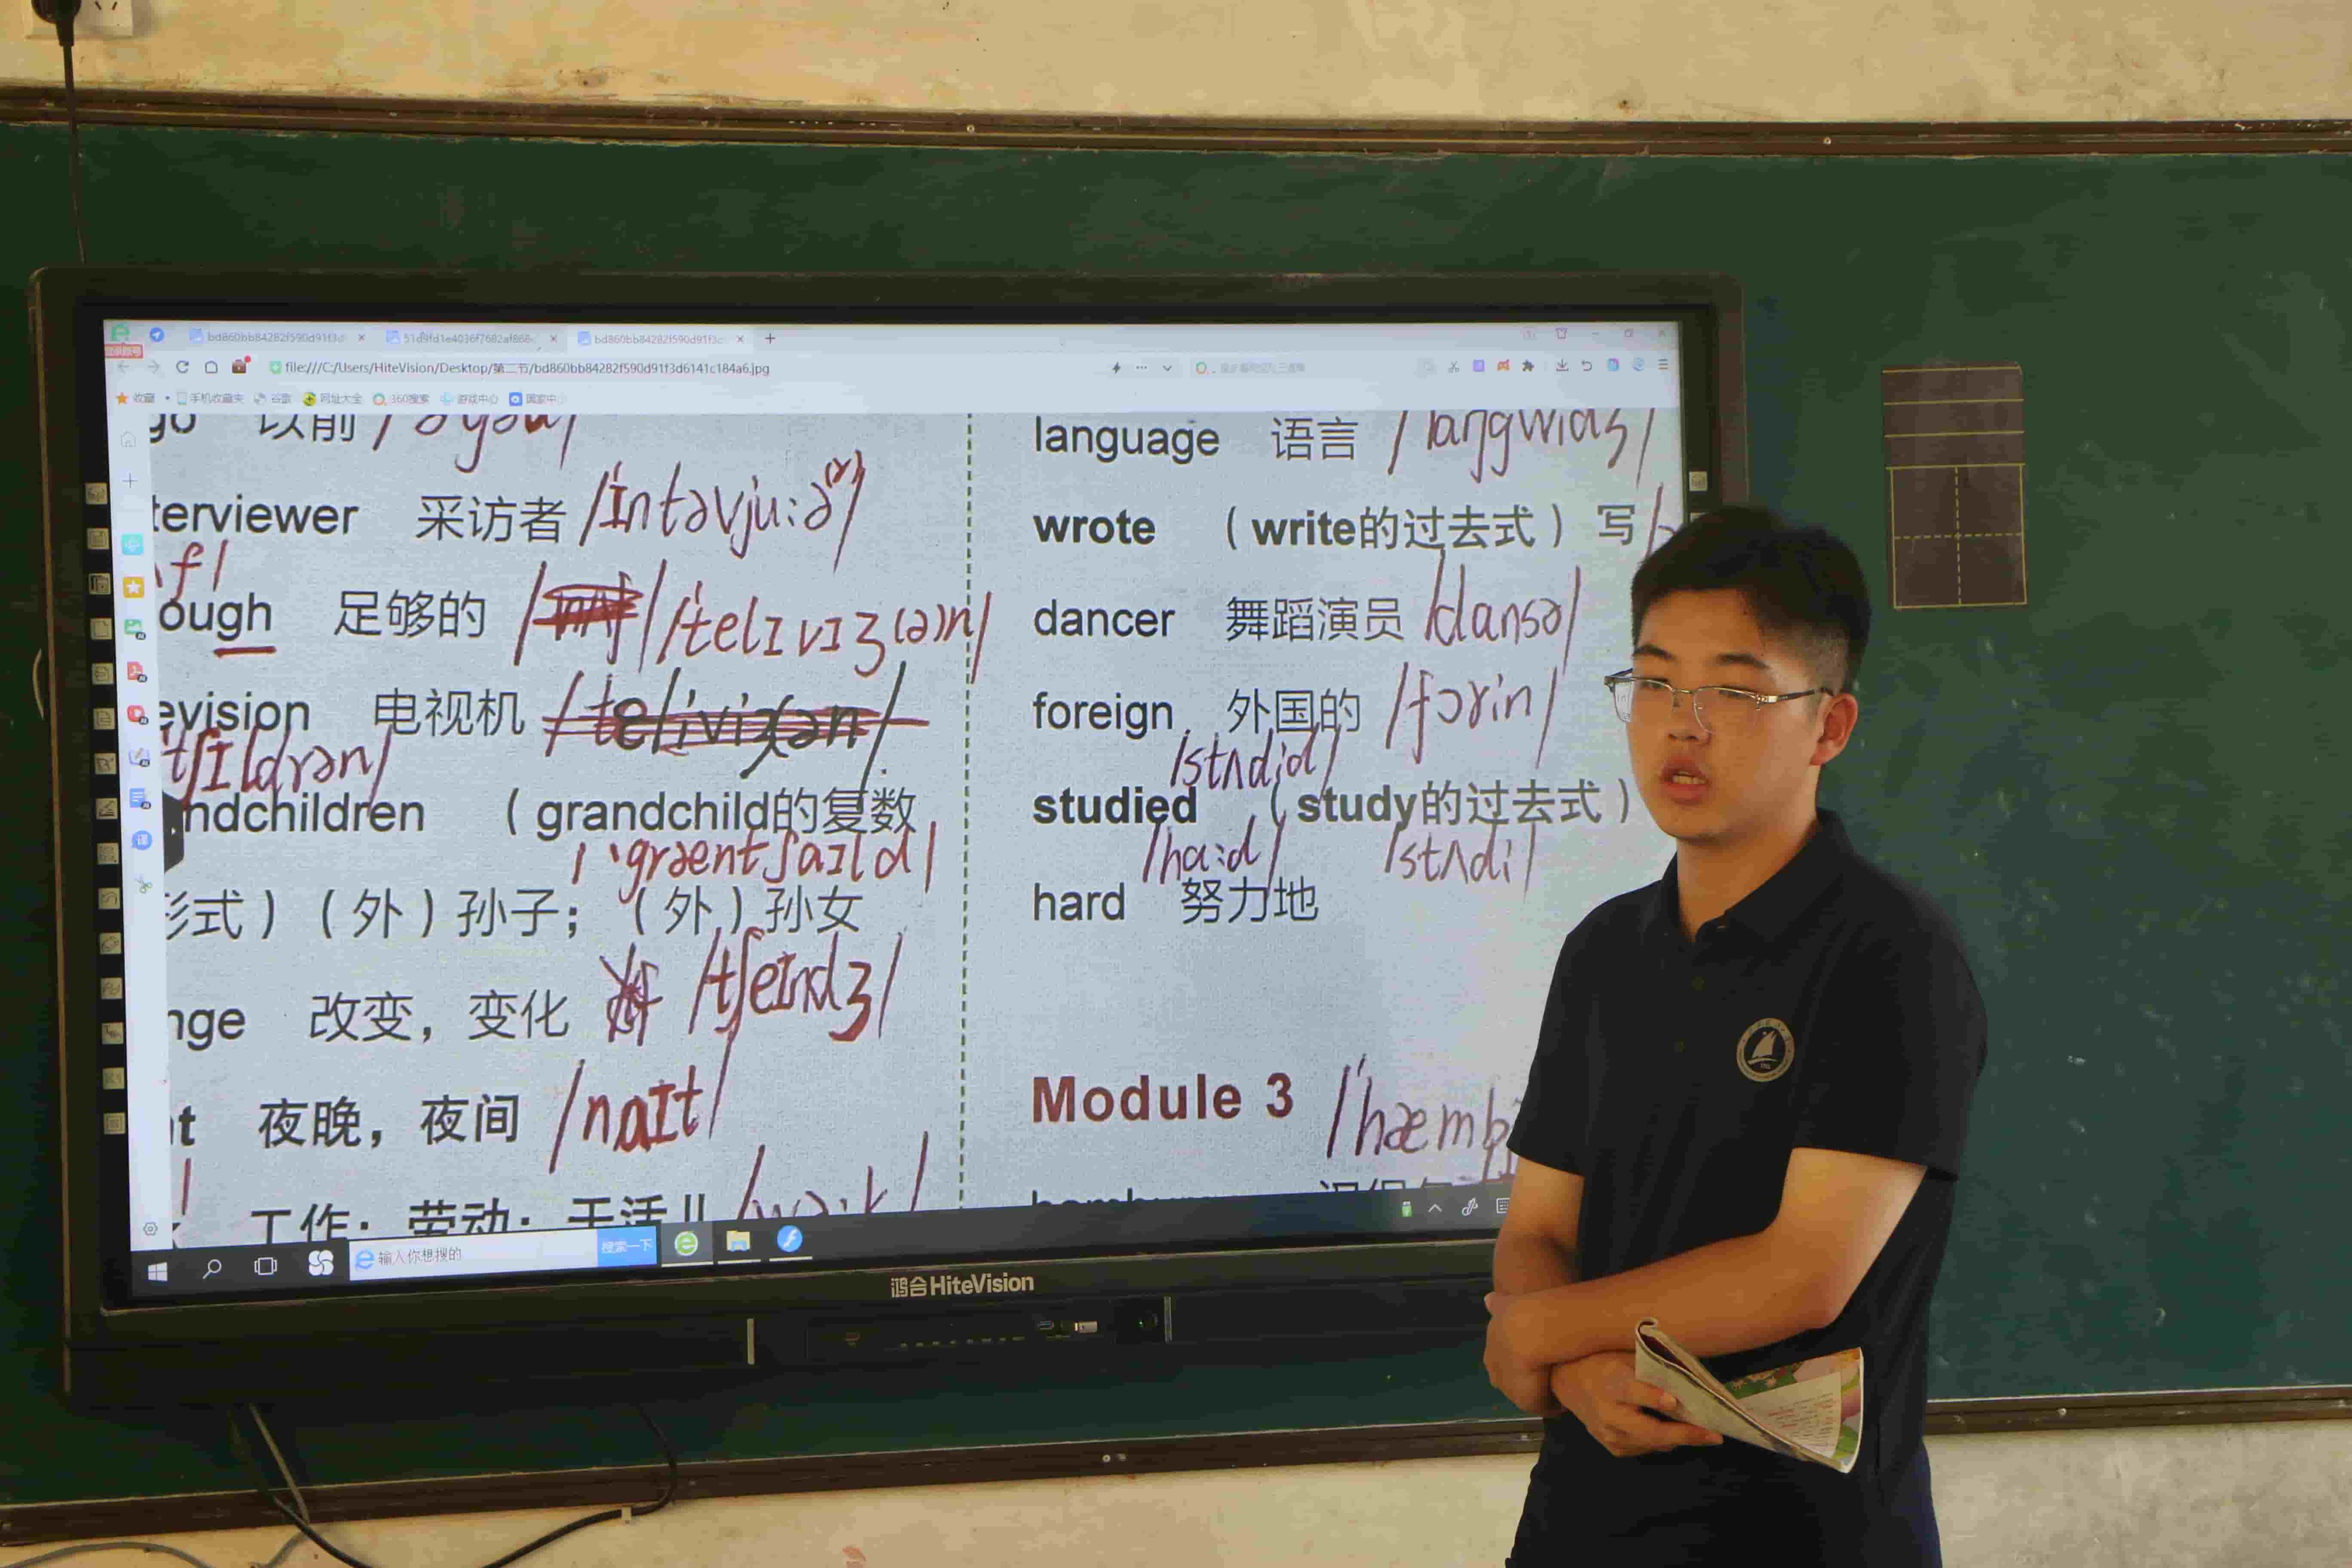 file:///C:/Users/HiteVision/Desktop/第二节/bd860bb84282f590d91f3d6141c184a6.jpg
收藏 手机收藏夹 谷歌 网址大全 360搜索 游戏中心
go 以前
terviewer 采访者 /ˈɪntəvjuːə(r)/
ough 足够的 /ˈtelɪvɪʒ(ə)n/
evision 电视机
tʃɪldrən/
ndchildren （grandchild的复数
/ˈgræntʃaɪld/
形式）（外）孙子；（外）孙女
nge 改变，变化 /tʃeɪndʒ/
t 夜晚，夜间 /naɪt/
工作；劳动；干活儿 /wəːk/
language 语言 /langwidʒ/
wrote （write的过去式） 写
dancer 舞蹈演员 /dansə/
foreign 外国的 /fɔrin/
/stʌdid/
studied （study的过去式）
/haːd/ /stʌdi/
hard 努力地
Module 3 /ˈhæmb
输入你想搜的 搜索一下
鸿合HiteVision